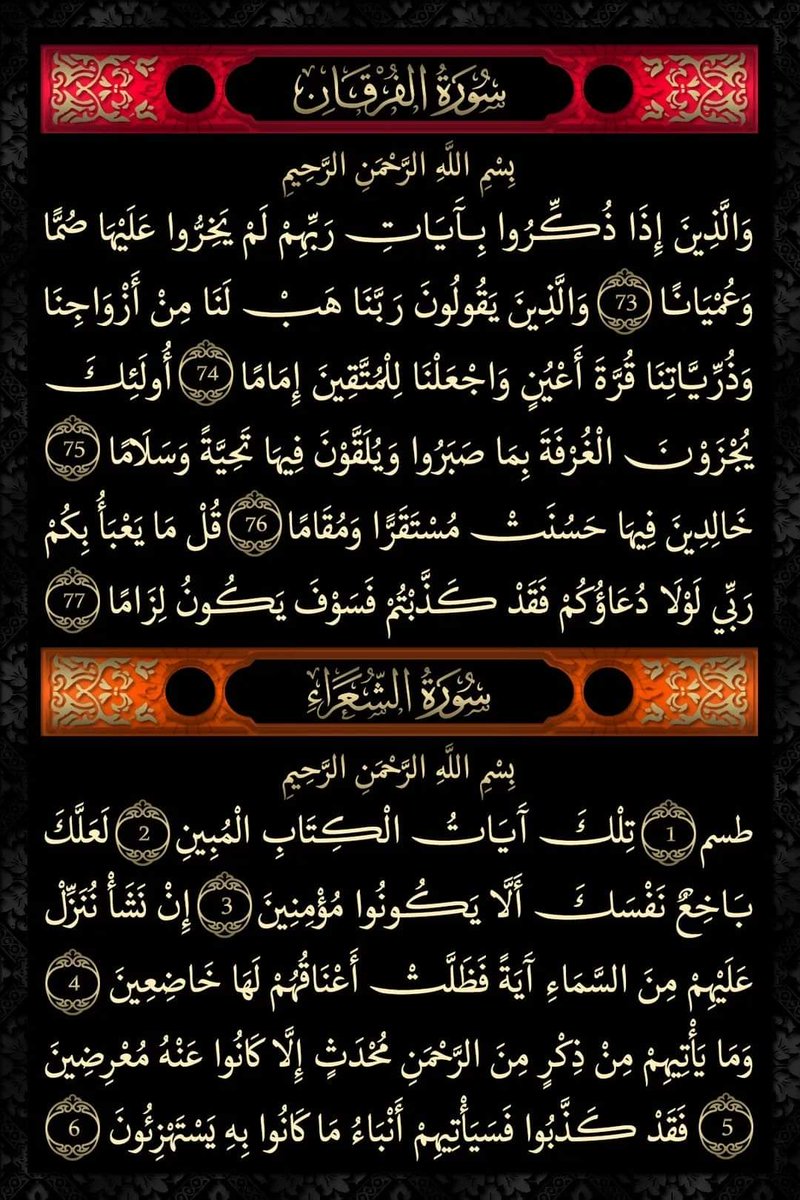 سُورَةُ الفُرْقَانِ
بِسْمِ اللَّهِ الرَّحْمَنِ الرَّحِيمِ
وَالَّذِينَ إِذَا ذُكِّرُوا بِآيَاتِ رَبِّهِمْ لَمْ يَخِرُّوا عَلَيْهَا صُمًّا
وَعُمْيَانًا 73 وَالَّذِينَ يَقُولُونَ رَبَّنَا هَبْ لَنَا مِنْ أَزْوَاجِنَا
وَذُرِّيَّاتِنَا قُرَّةَ أَعْيُنٍ وَاجْعَلْنَا لِلْمُتَّقِينَ إِمَامًا 74 أُولَئِكَ
يُجْزَوْنَ الْغُرْفَةَ بِمَا صَبَرُوا وَيُلَقَّوْنَ فِيهَا تَحِيَّةً وَسَلَامًا 75
خَالِدِينَ فِيهَا حَسُنَتْ مُسْتَقَرًّا وَمُقَامًا 76 قُلْ مَا يَعْبَأُ بِكُمْ
رَبِّي لَوْلَا دُعَاؤُكُمْ فَقَدْ كَذَّبْتُمْ فَسَوْفَ يَكُونُ لِزَامًا 77
سُورَةُ الشُّعَرَاءِ
بِسْمِ اللَّهِ الرَّحْمَنِ الرَّحِيمِ
طسم 1 تِلْكَ آيَاتُ الْكِتَابِ الْمُبِينِ 2 لَعَلَّكَ
بَاخِعٌ نَفْسَكَ أَلَّا يَكُونُوا مُؤْمِنِينَ 3 إِنْ نَشَأْ نُنَزِّلْ
عَلَيْهِمْ مِنَ السَّمَاءِ آيَةً فَظَلَّتْ أَعْنَاقُهُمْ لَهَا خَاضِعِينَ 4
وَمَا يَأْتِيهِمْ مِنْ ذِكْرٍ مِنَ الرَّحْمَنِ مُحْدَثٍ إِلَّا كَانُوا عَنْهُ مُعْرِضِينَ
5 فَقَدْ كَذَّبُوا فَسَيَأْتِيهِمْ أَنْبَاءُ مَا كَانُوا بِهِ يَسْتَهْزِئُونَ 6